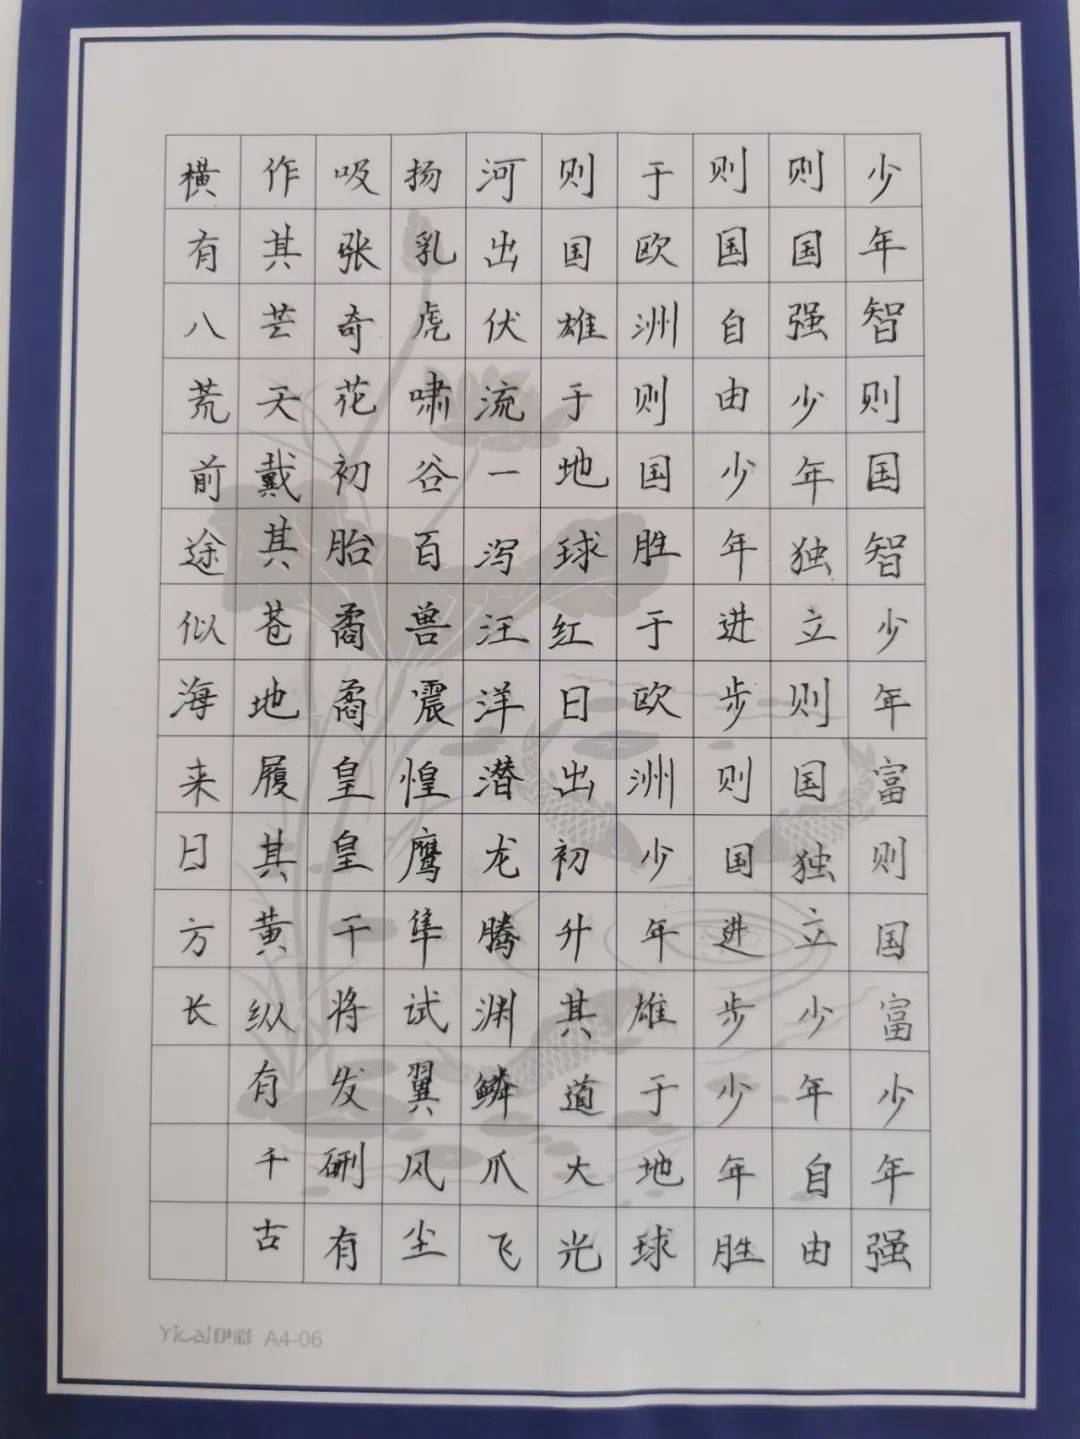 少年智则国智少年富则国富少年强
则国强少年独立则国独立少年自由
则国自由少年进步则国进步少年胜
于欧洲则国胜于欧洲少年雄于地球
则国雄于地球红日出初升其道大光
河出伏流一泻汪洋潜龙腾渊鳞爪飞
扬乳虎啸谷百兽震惶鹰隼试翼风尘
吸张奇花初胎矞矞皇皇干将发硎有
作其芒天戴其苍地履其黄纵有千古
横有八荒前途似海来日方长
Ykai伊彩 A4-06